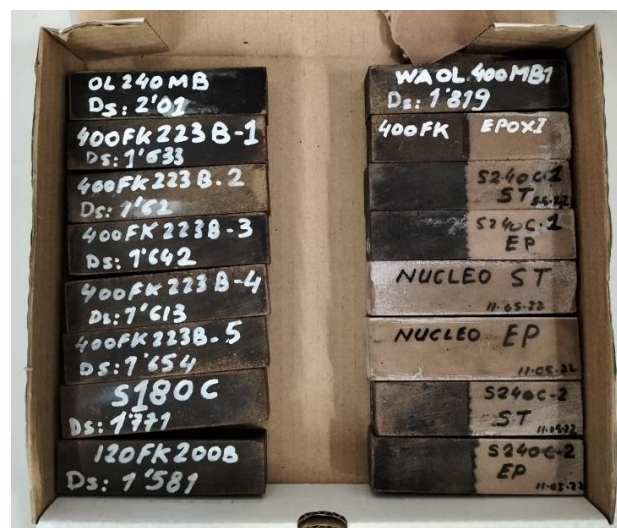 OL 240 MB
Ds: 2'01
400FK223B-1
Ds: 1'633
400FK223B.2
Ds: 1'62
400FK223B-3
Ds: 1'642
400FK223B-4
Ds: 1'613
400FK223B-5
Ds: 1'654
S180C
Ds: 1'771
120FK200B
Ds: 1'581
WAOL.400MB1
Ds: 1'819
400FK EPOXI
S240C-1
ST
S240C-1
EP
NUCLEO ST
11-05-22
NUCLEO EP
11-05-22
S240C-2
ST 11-05-22
S240C-2
EP
11-05-22